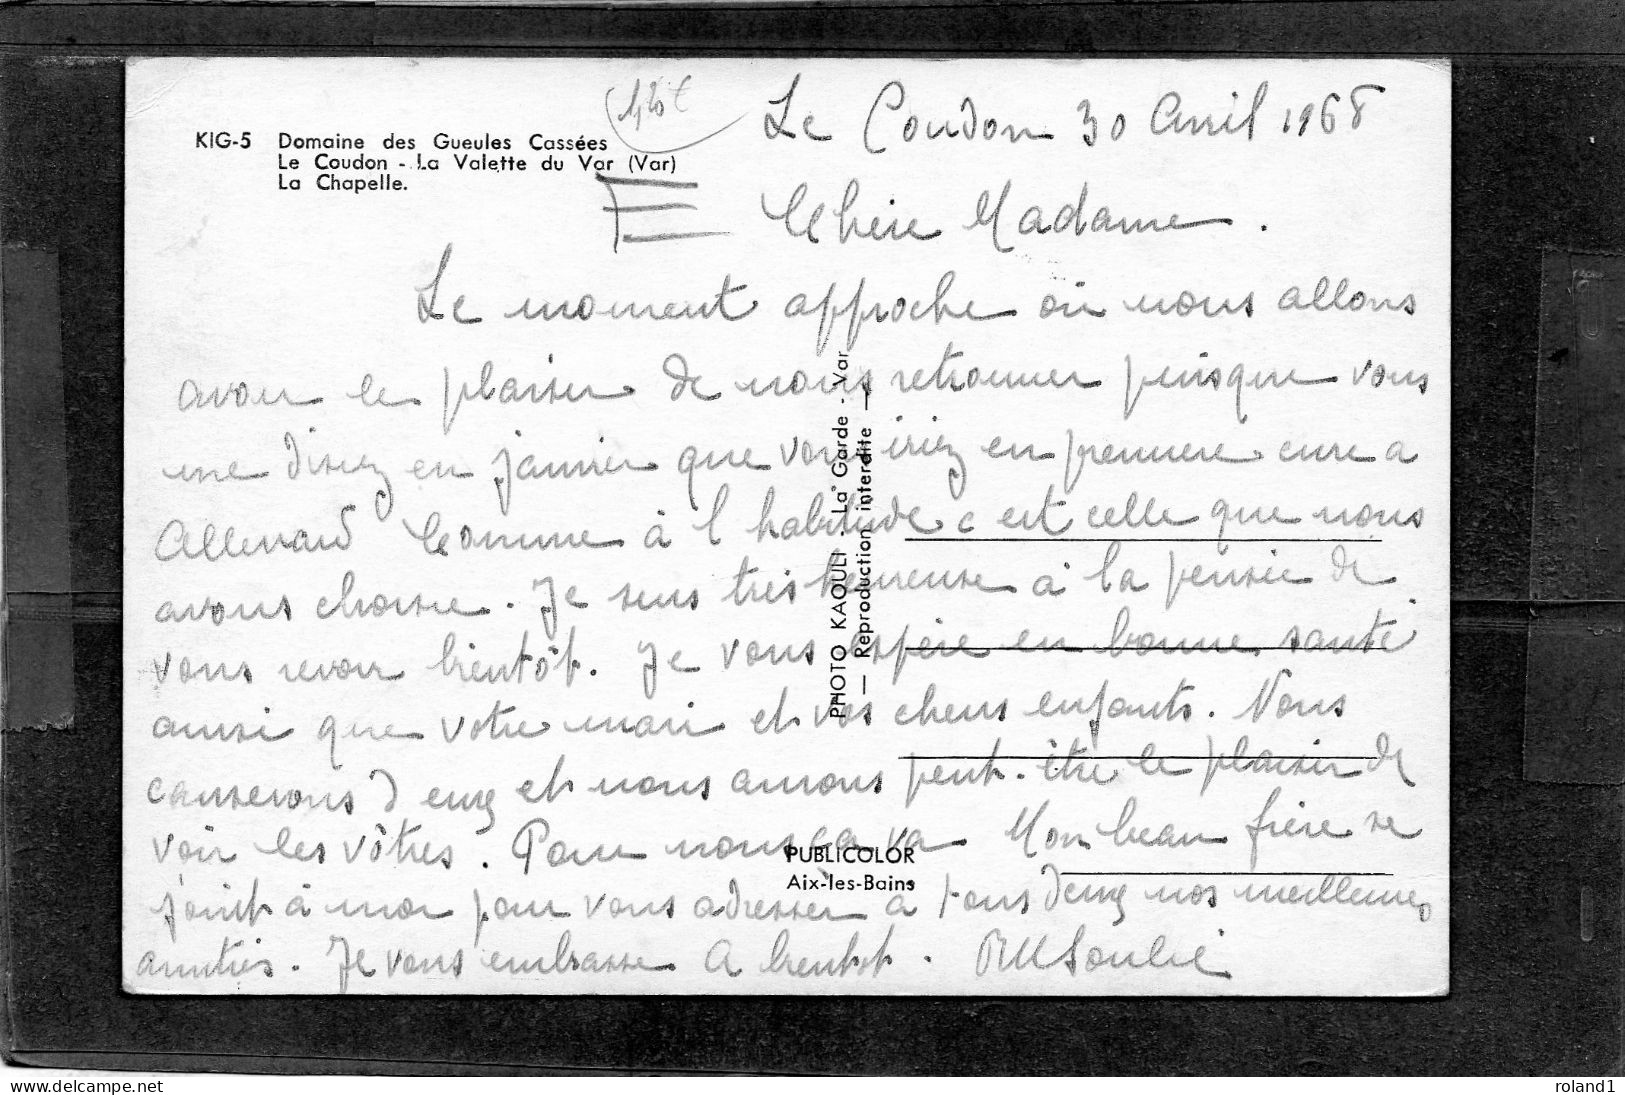 KIG-5 Domaine des Gueules Cassées
Le Coudon - La Valette du Var (Var)
La Chapelle.
Le Coudon 30 Avril 1968
Chère Madame.
Le moment approche où nous allons
avoir le plaisir de nous retrouver puisque vous
me disiez en janvier que vous iriez en premiere cure a
Allevard Comme à l habitude c est celle que nous
avons choisie. Je suis très heureuse à la pensée de
vous revoir bientôt. Je vous espère en bonne santé
ainsi que votre mari et vos chers enfants. Nous
causerons d eux et nous aurons peut-être le plaisir de
voir les vôtres. Pour nous ça va Mon beau frère se
joint à moi pour vous adresser à tous deux nos meilleures
amitiés. Je vous embrasse A bientot. Soulié
PHOTO KAOULI - La Garde - Var
— Reproduction interdite —
PUBLICOLOR
Aix-les-Bains
delcampe.net
roland1